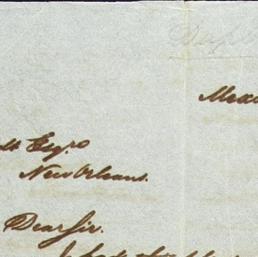 Dupl
Mexi
tt Esqre
New Orleans.
Dear Sir.